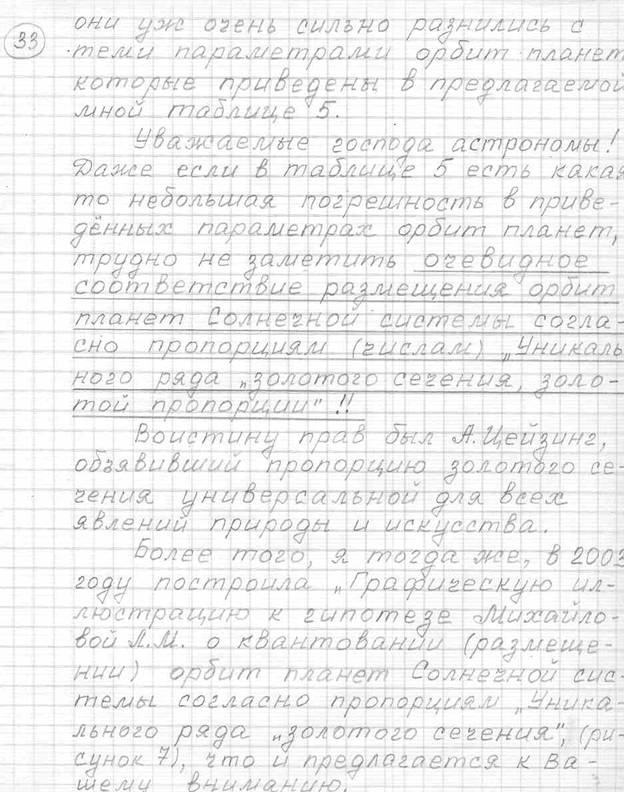 33
они уж очень сильно разнились с
теми параметрами орбит планет
которые приведены в предлагаемой
мной таблице 5.
Уважаемые господа астрономы!
Даже если в таблице 5 есть какая
то небольшая погрешность в приве-
дённых параметрах орбит планет,
трудно не заметить очевидное
соответствие размещения орбит
планет Солнечной системы согла-
сно пропорциям (числам) „Уникаль
ного ряда „золотого сечения, золо-
той пропорции" !!
Воистину прав был А.Цейзинг,
объявивший пропорцию золотого се-
чения универсальной для всех
явлений природы и искусства.
Более того, я тогда же, в 2003
году построила „Графическую ил-
люстрацию к гипотезе Михайло-
вой Л.М. о квантовании (размеще-
нии) орбит планет Солнечной сис-
темы согласно пропорциям „Уника-
льного ряда „золотого сечения", (ри-
сунок 7), что и предлагается к Ва-
шему вниманию.